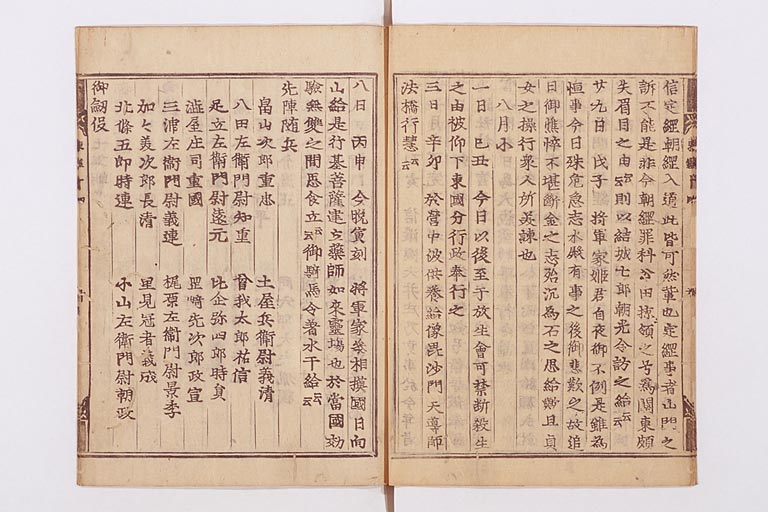 信定經朝經入道此皆可然輩也定經事者山門之
訴不能是非今朝經罪科分田掠領之号為關東頗
失眉目之由云云則以結城七郎朝光令訪之給云云
廿九日 戊子 將軍家姬君自夜御不例是雖為
恒事今日殊危急志水殿有事之後御悲歎之故追
日御憔悴不堪斷金之志殆沉為石之思給歟且貞
女之操行衆人所美談也
八月小
一日 己丑 今日以後至于放生會可禁斷殺生
之由被仰下東國分行政奉行之
三日 辛卯 於營中被供養給像毘沙門天導師
法橋行慧云云
八日 丙申 今晩寅刻 將軍家參相摸國日向
山給是行基菩薩建立藥師如來靈場也於當國効
驗無雙之間思食立云云御騎馬令著水干給云云
先陣隨兵
畠山次郎重忠 土屋兵衛尉義清
八田左衛門尉知重 曾我太郎祐信
足立左衛門尉遠元 比企弥四郎時員
澁屋庄司重國 里嵜先次郎政宣
三浦左衛門尉義連 梶原左衛門尉景季
加々美次郎長清 里見冠者義成
北條五郎時連 小山左衛門尉朝政
御劔役